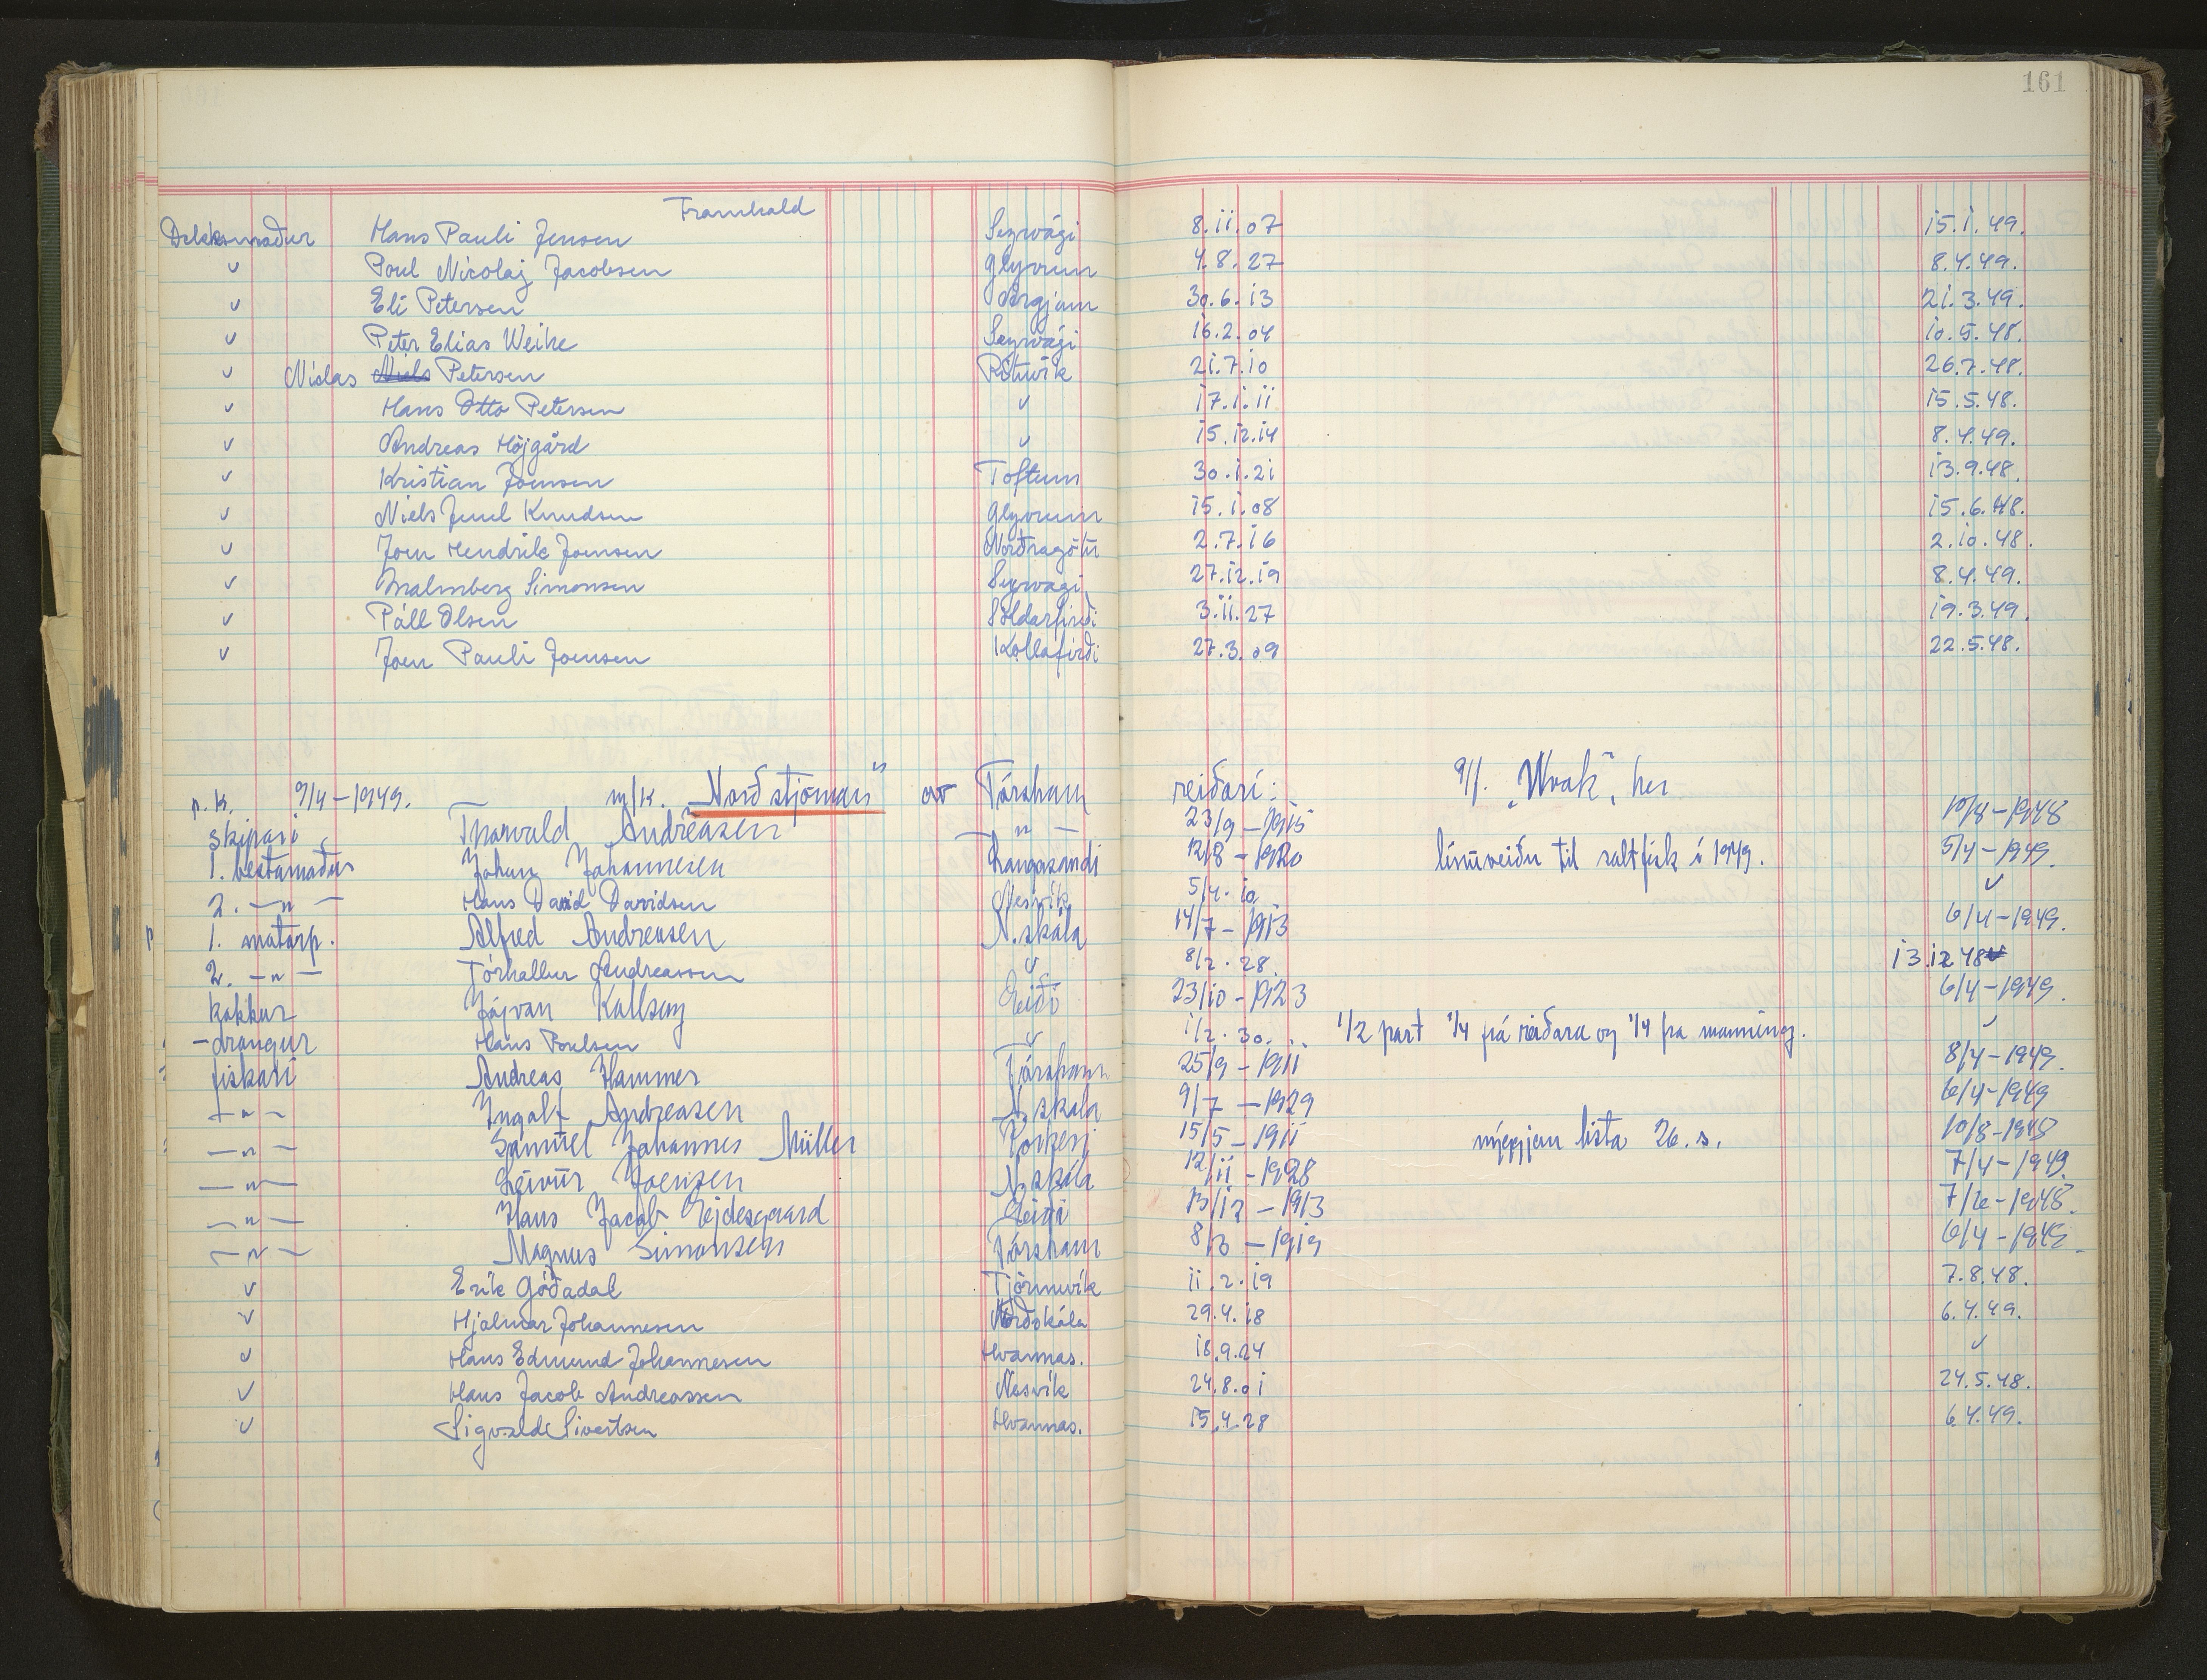 161
Framhald
Dekksmaður Hans Pauli Jensen Sørvági 8.11.07 15.1.49.
v Poul Nicolaj Jacobsen Glyvrum 4.8.27 8.4.49.
v Eli Petersen Argjum 30.6.13 21.3.49.
v Peter Elias Weihe Sørvági 16.2.04 10.5.48.
v Niclas Niels Petersen Rituvík 21.7.10 26.7.48.
v Hans Otto Petersen v 17.1.11 15.5.48.
v Andreas Højgård v 15.12.14 8.4.49.
v Kristian Joensen Toftum 30.1.21 13.9.48.
v Niels Juul Knudsen Glyvrum 15.1.08 15.6.48.
v Joen Hendrik Joensen Norðragøtu 2.7.16 2.10.48.
v Malmberg Simonsen Sørvági 27.12.19 8.4.49.
v Páll Olsen Søldarfirði 3.11.27 19.3.49.
v Joen Pauli Joensen Kollafirði 27.3.09 22.5.48.
p.k. 9/4-1949. m/k. "Norðstjørnan" av Tórshavn reiðari: P/f. "Wrak", her
skipari Thorvald Andreasen -"- 23/9-1915 10/8-1948
1. bestamaður Johan Johannesen Langasandi 12/8-1920 línuveiðu til saltfisk í 1949. 5/4-1949.
2. -"- Hans David Davidsen Nesvík 5/4.10 v
1. matørp. Alfred Andreasen N.skála 14/7-1913 6/4-1949.
2. -"- Tórhallur Andreassen v 8/2.28. 13.12.48
kokkur Jógvan Kallsoy Eiði 23/10-1923 6/4-1949.
-drongur Hans Poulsen v 1/2.30. 1/2 part 1/4 frá reiðara og 1/4 fra manning. v
fiskari Andreas Hammer Tórshavn 25/9-1911 8/4-1949.
-"- Ingolf Andreasen N.skála 9/7-1929 6/4-1949
-"- Samuel Johannes Müller Porkeri 15/5-1911 mýggjan lista 26. s. 10/8-1948
-"- Leivur Joensen N.skála 12/11-1928 7/4-1949.
-"- Hans Jacob Ejdesgaard Eiði 13/12-1913 7/12-1948.
-"- Magnus Simonsen Tórshavn 8/3-1919 6/4-1949.
v Erik Gøðadal Tjørnuvík 11.2.19 7.8.48.
v Hjalmar Johannesen Norðskála 29.4.18 6.4.49.
v Hans Edmund Johannesen Hvannas. 18.9.24 v
v Hans Jacob Andreassen Nesvík 24.8.01 24.5.48.
v Sigvald Sivertsen Hvannas. 15.4.28 6.4.49.